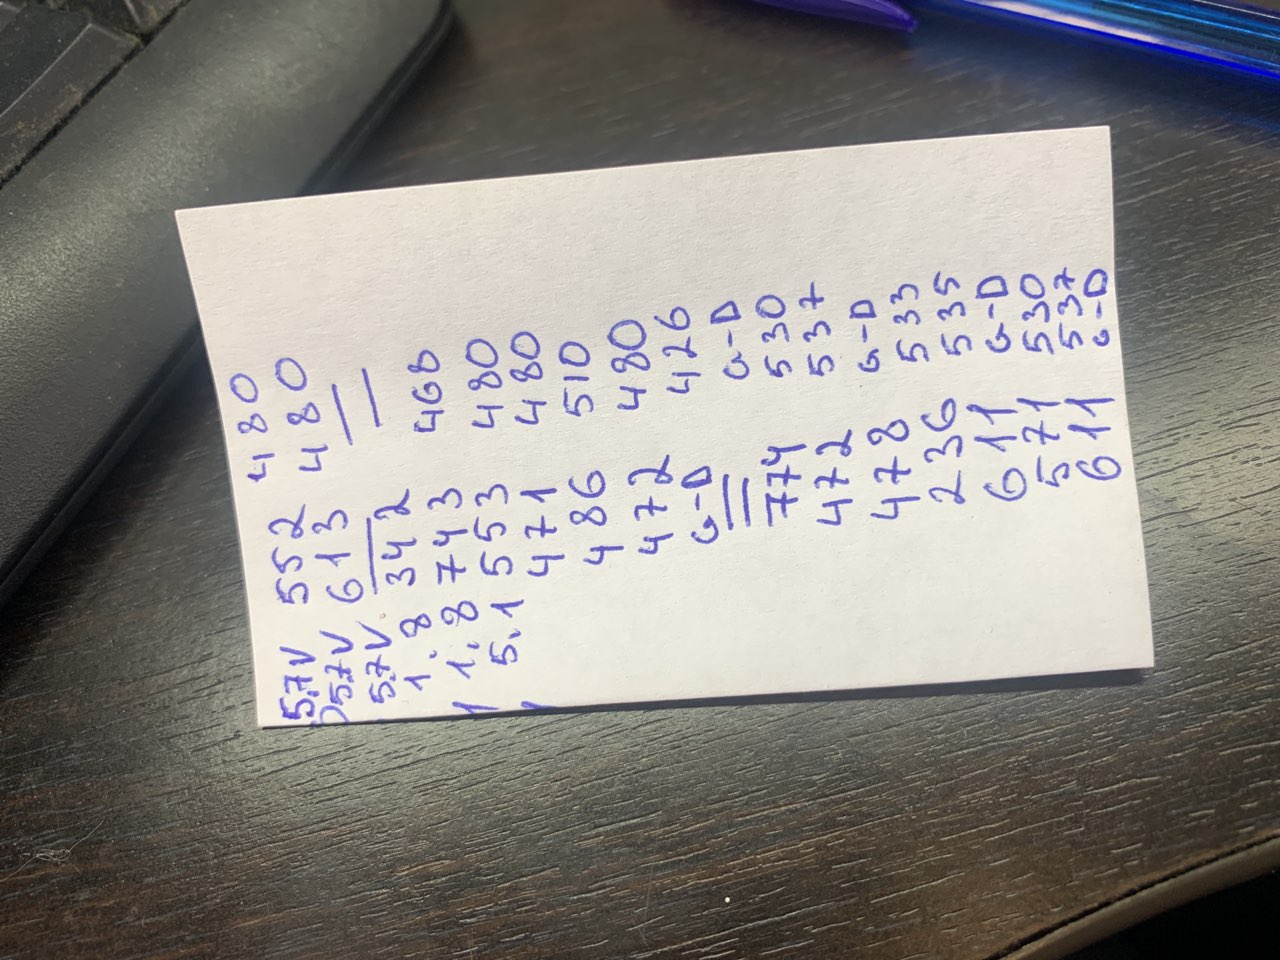 5.7V 552 480
5.7V 613 480
5.7V — —
1.8 342 —
1.8 743 468
5.1 553 480
471 480
486 510
472 480
G-D 426
= G-D
774 530
472 537
478 G-D
236 533
611 535
571 G-D
611 530
537
G-D